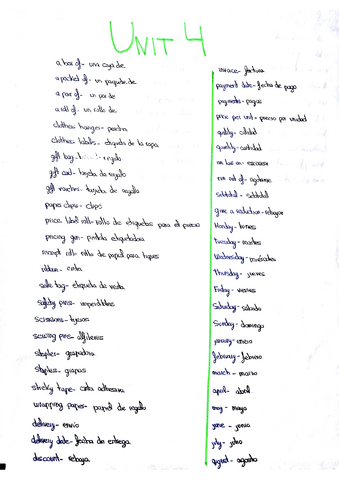 UNIT 4
a box of - una caja de
a packed of - un paquete de
a pair of - un par de
a roll of - un rollo de
clothes hangers - percha
clothes labels - etiqueta de la ropa
gift bag - regalo
gift card - tarjeta de regalo
gift vouchers - tarjeta de regalo
paper clips - clips
price label roll - rollo de etiquetas para el precio
pricing gun - pistola etiquetadora
receipt roll - rollo de papel para tiques
ribbon - cinta
sale bag - etiqueta de venta
safety pins - imperdibles
scissors - tijeras
sewing pins - alfileres
stapler - grapadora
staples - grapas
sticky tape - cinta adhesiva
wrapping paper - papel de regalo
delivery - envío
delivery date - fecha de entrega
discount - rebaja
invoice - factura
payment date - fecha de pago
payments - pagos
price per unit - precio por unidad
quality - calidad
quantity - cantidad
be low on - escasear
run out of - agotarse
subtotal - subtotal
give a reduction - rebajar
Monday - lunes
Tuesday - martes
Wednesday - miércoles
Thursday - jueves
Friday - viernes
Saturday - sabado
Sunday - domingo
january - enero
february - febrero
march - marzo
april - abril
may - mayo
june - junio
july - julio
august - agosto